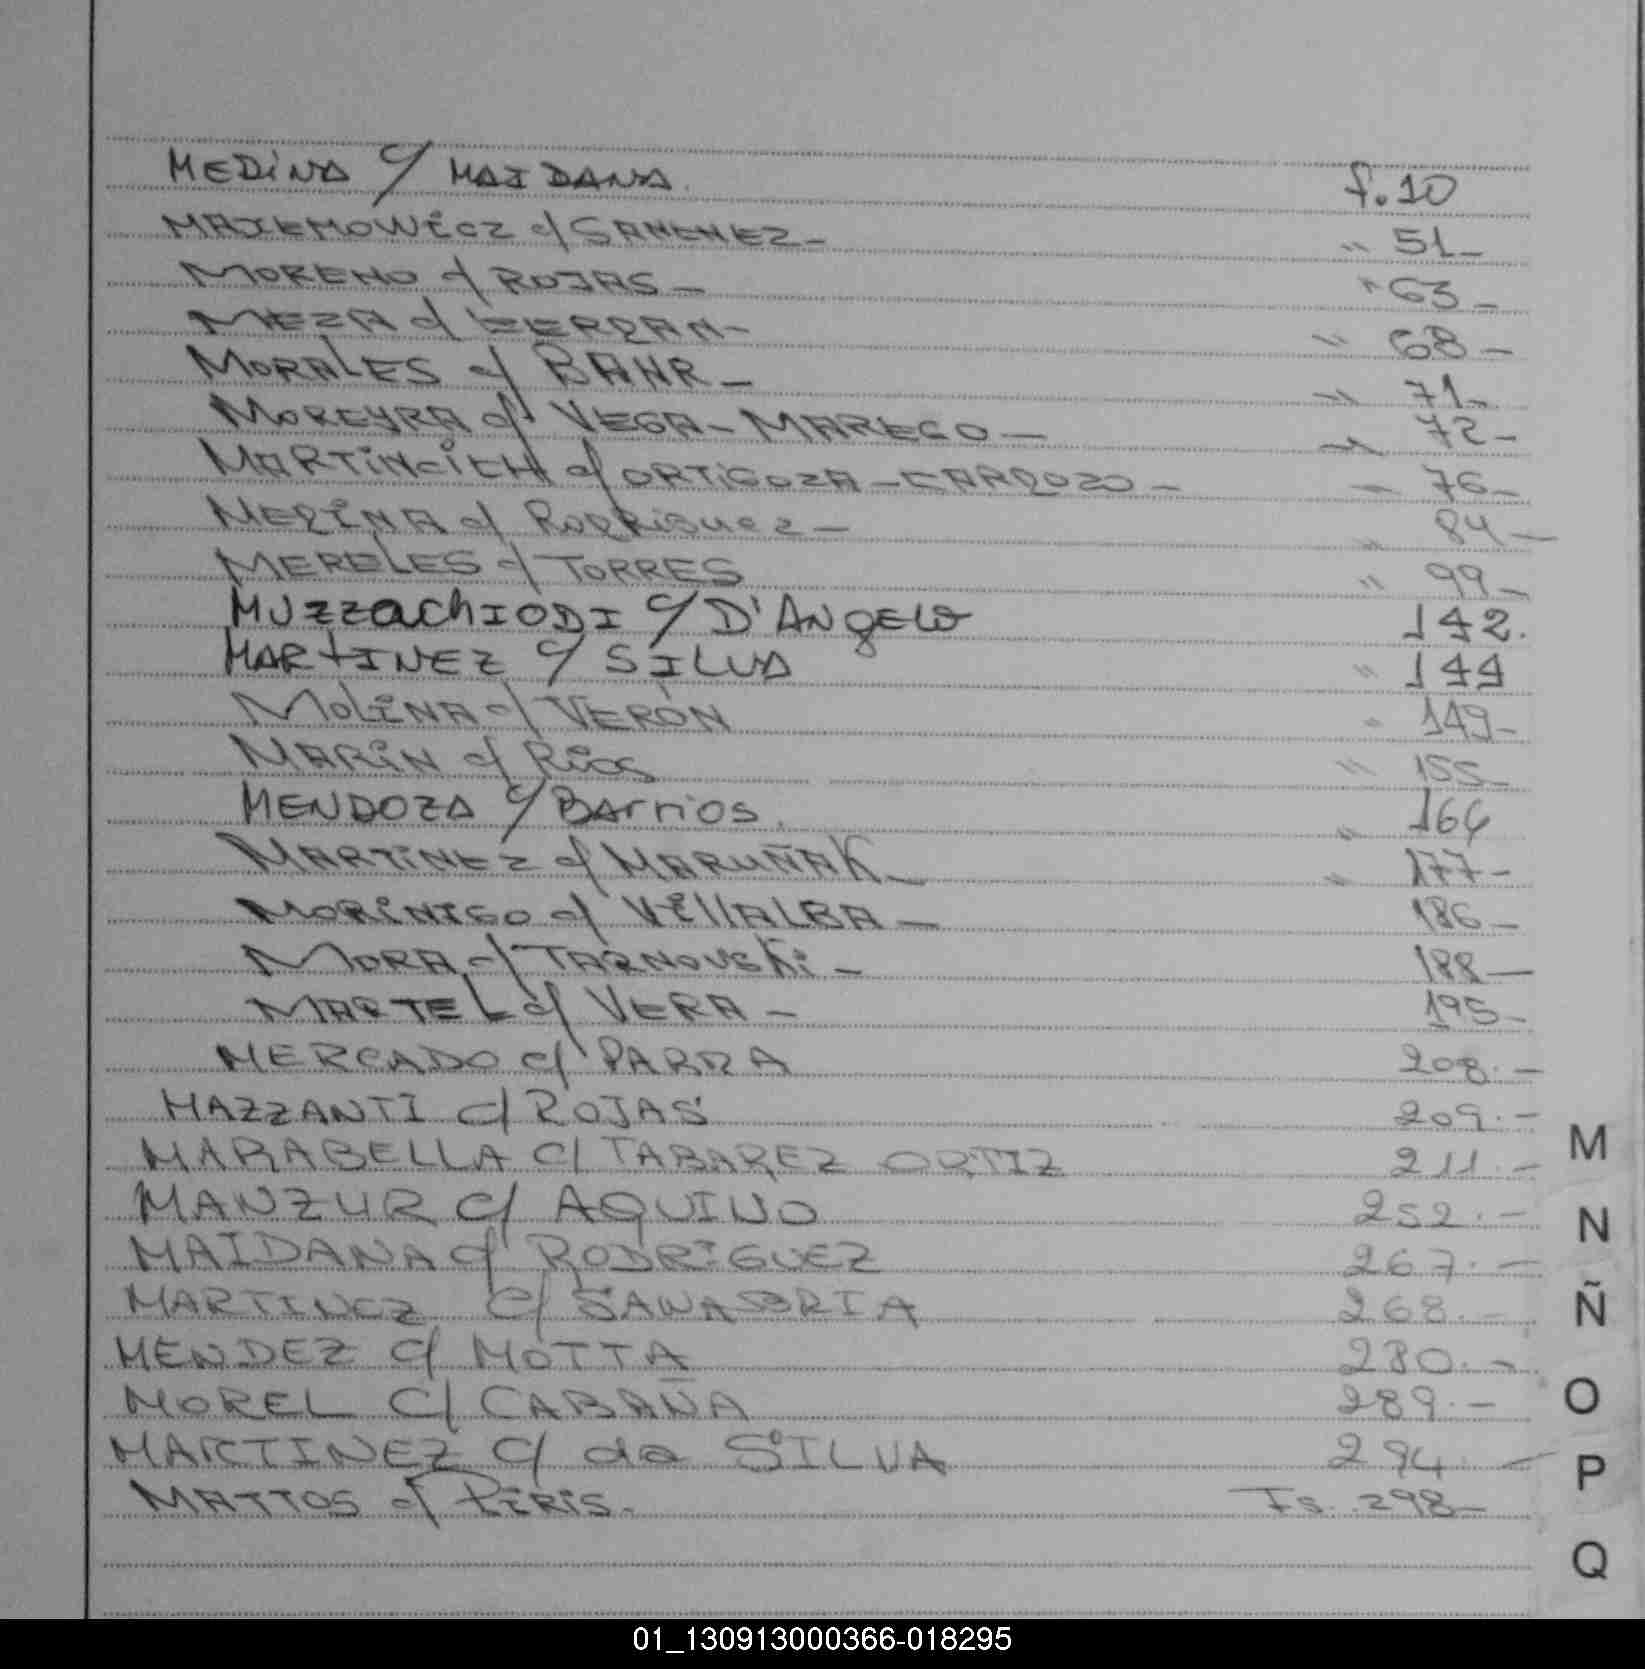 MEDINA c/ MAIDANA. f. 10
c/ SANCHEZ- " 51-
MORENO c/ ROJAS- " 63-
MEZA c/ " 68-
MORALES c/ BAHR- " 71-
MOREYRA c/ VEGA-MARECO- " 72-
c/ ORTIGOZA-CARDOZO- " 76-
MEDINA c/ RODRIGUEZ- " 84-
MERELES c/ TORRES " 99-
MUZZACHIODI c/ D'ANGELO 142.
MARTINEZ c/ SILVA " 144
MOLINA c/ VERÓN " 149-
MARIN c/ Rios " 155-
MENDOZA c/ BArrios. " 164
MARTINEZ c/ MARUÑAK- " 177-
MORINIGO c/ VillALBA- 186-
MORA c/ TARNOVSKi- 188-
MARTEL c/ VERA- 195-
MERCADO c/ PARRA 208.-
MAZZANTI c/ ROJAS 209.-
MARABELLA c/ TABAREZ ORTIZ 211.-
MANZUR c/ AQUINO 252.-
MAIDANA c/ RODRIGUEZ 267.-
MARTINEZ c/ SANABRIA 268.-
MENDEZ c/ MOTTA 280.-
MOREL c/ CABAÑA 289.-
MARTINEZ c/ da SILVA 294.-
MATTOS c/ PIRIS. Fs. 298-
M
N
Ñ
O
P
Q
01_130913000366-018295